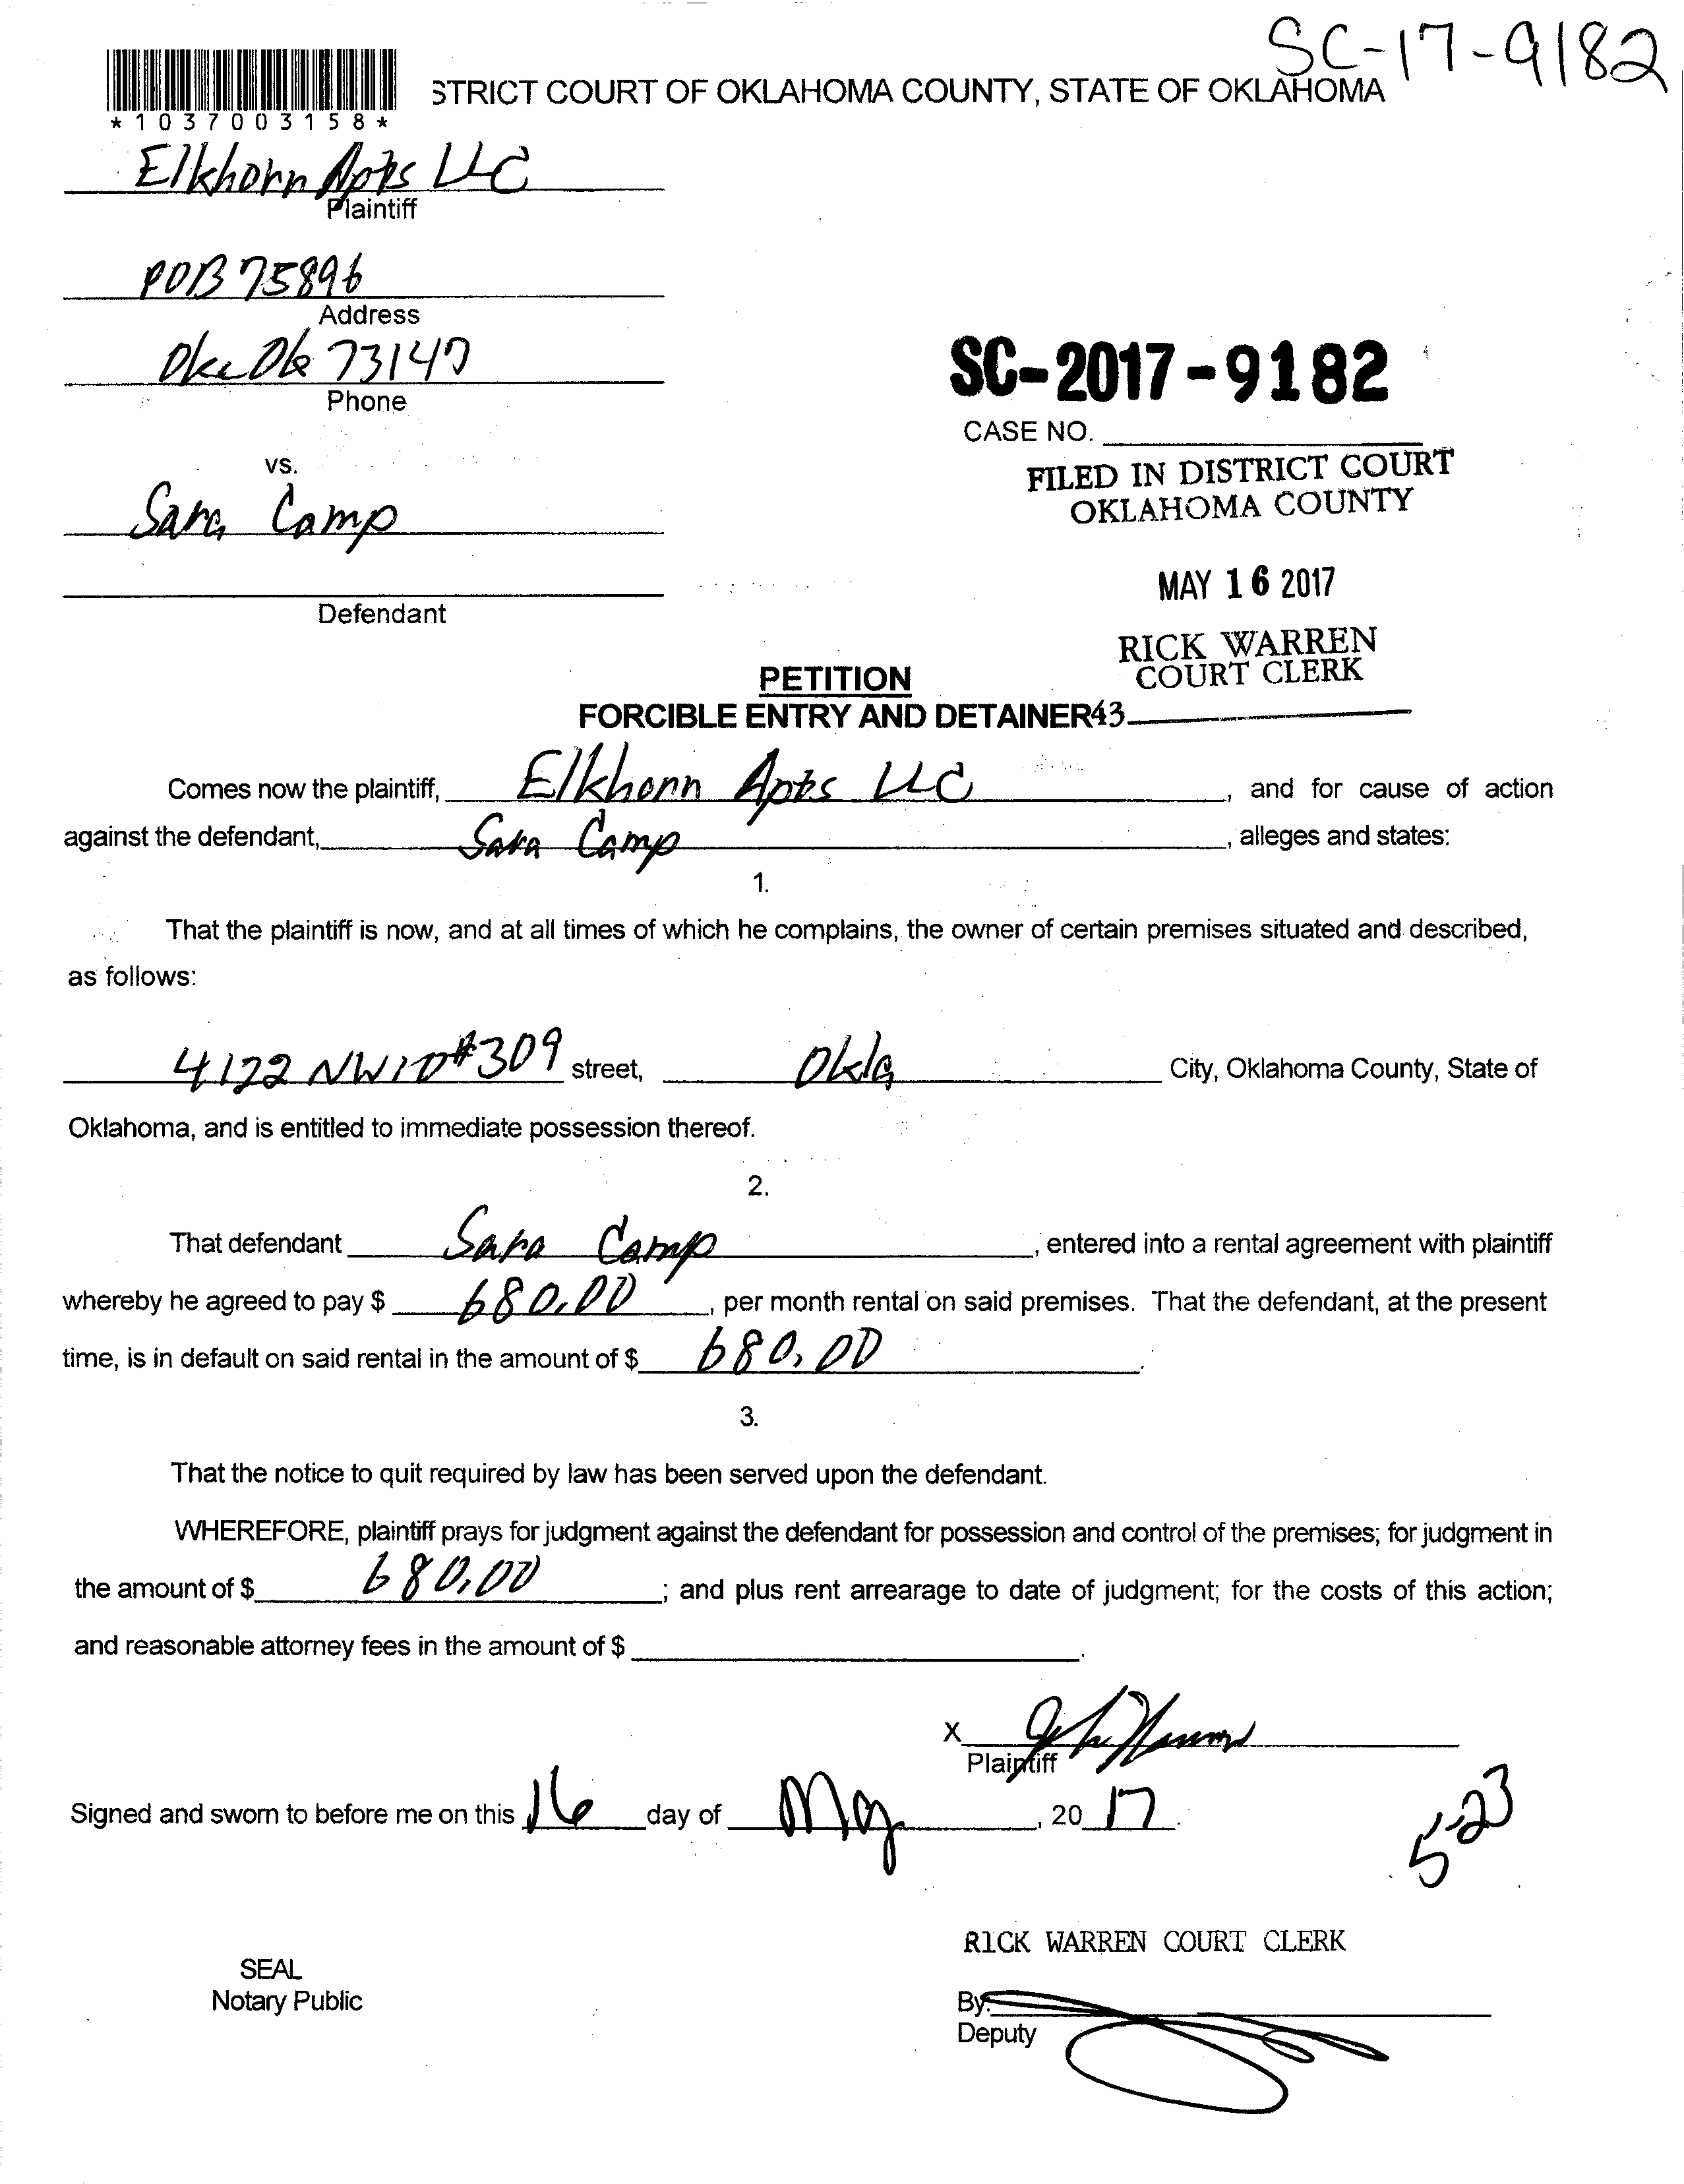 SC-17-9182
STRICT COURT OF OKLAHOMA COUNTY, STATE OF OKLAHOMA
*1037003158*
Elkhorn Apts LLC
Plaintiff
POB 75896
Address
Okc Ok 73147
Phone
SC-2017-9182
CASE NO.
vs.
FILED IN DISTRICT COURT
OKLAHOMA COUNTY
Sara Camp
MAY 16 2017
Defendant
RICK WARREN
COURT CLERK
PETITION
FORCIBLE ENTRY AND DETAINER
43
Comes now the plaintiff, Elkhorn Apts LLC, and for cause of action
against the defendant, Sara Camp, alleges and states:
1.
That the plaintiff is now, and at all times of which he complains, the owner of certain premises situated and described,
as follows:
4122 NW10 #309 street, Okla City, Oklahoma County, State of
Oklahoma, and is entitled to immediate possession thereof.
2.
That defendant Sara Camp, entered into a rental agreement with plaintiff
whereby he agreed to pay $ 680.00, per month rental on said premises. That the defendant, at the present
time, is in default on said rental in the amount of $ 680.00.
3.
That the notice to quit required by law has been served upon the defendant.
WHEREFORE, plaintiff prays for judgment against the defendant for possession and control of the premises; for judgment in
the amount of $ 680.00; and plus rent arrearage to date of judgment; for the costs of this action;
and reasonable attorney fees in the amount of $ .
X
Plaintiff
Signed and sworn to before me on this 16 day of May, 20 17.
5-23
RICK WARREN COURT CLERK
SEAL
Notary Public
By:
Deputy